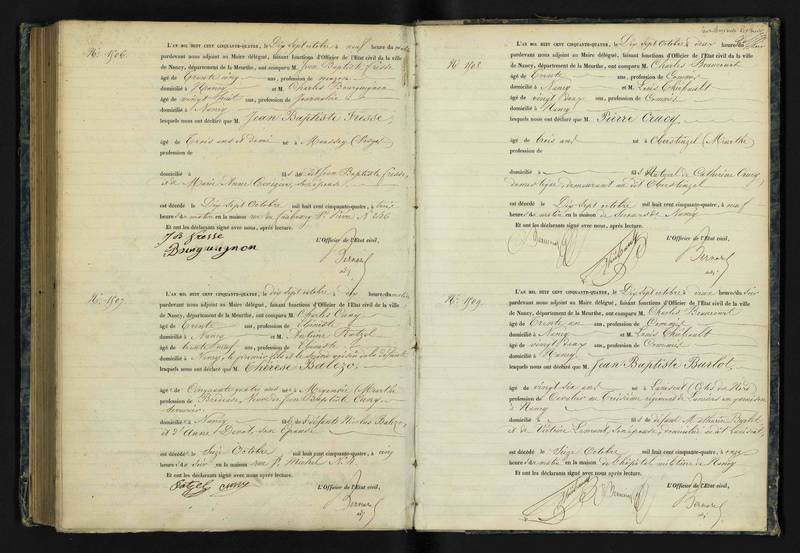 N° 1506.
L'AN MIL HUIT CENT CINQUANTE-QUATRE, le Dix Sept octobre à neuf heures du matin
pardevant nous adjoint au Maire délégué, faisant fonctions d'Officier de l'État civil de la ville
de Nancy, département de la Meurthe, ont comparu M. Jean Baptiste Fresse
âgé de Trente cinq ans, profession de
domicilié à Nancy et M. Charles Bourguignon
âgé de vingt huit ans, profession de Journalier
domicilié à Nancy
lesquels nous ont déclaré que M. Jean Baptiste Fresse,
âgé de Trois ans et demi né à Moussey (Vosges)
profession de
domicilié à fils de dit Jean Baptiste Fresse,
et de Marie Anne son épouse
est décédé le Dix Sept Octobre mil huit cent cinquante-quatre, à
heures du matin en la maison rue du faubourg St Pierre N° 236
Et ont les déclarants signé avec nous, après lecture.
J B Fresse
Bourguignon
L'Officier de l'État civil,
Bernard
adj.
N° 1507.
L'AN MIL HUIT CENT CINQUANTE-QUATRE, le dix sept octobre à dix heures du matin
pardevant nous adjoint au Maire délégué, faisant fonctions d'Officier de l'État civil de la ville
de Nancy, département de la Meurthe, ont comparu M. Charles Cuny
âgé de Trente ans, profession de Ebéniste
domicilié à Nancy et M. Antoine
âgé de trente neuf ans, profession de Ebéniste
domicilié à Nancy, le premier fils et le second voisin de la défunte
lesquels nous ont déclaré que M. Thérèse Balezo,
âgé de Cinquante quatre ans né à (Meurthe)
profession de Brodeuse, Veuve de Jean Baptiste Cuny
domicilié à Nancy fille des défunts Nicolas Balezo,
et d'Anne son épouse
est décédée le Seize Octobre mil huit cent cinquante-quatre, à cinq
heures du soir en la maison rue St Michel N°
Et ont les déclarants signé avec nous, après lecture.
L'Officier de l'État civil,
Bernard
adj.
N° 1508.
L'AN MIL HUIT CENT CINQUANTE-QUATRE, le Dix Sept Octobre à deux heures du Soir
pardevant nous adjoint au Maire délégué, faisant fonctions d'Officier de l'État civil de la ville
de Nancy, département de la Meurthe, ont comparu M. Charles
âgé de Trente ans, profession de Commis
domicilié à Nancy et M. Louis Thiébault
âgé de vingt deux ans, profession de Commis
domicilié à Nancy
lesquels nous ont déclaré que M. Pierre Crucy,
âgé de trois ans né à Oberstinzel (Meurthe)
profession de
domicilié à fils Naturel de Catherine Crucy
domestique, demeurant au dit Oberstinzel
est décédé le Dix Sept octobre mil huit cent cinquante-quatre, à neuf
heures du matin en la maison de Secours de Nancy
Et ont les déclarants signé avec nous, après lecture.
L'Officier de l'État civil,
Bernard
adj.
N° 1509.
L'AN MIL HUIT CENT CINQUANTE-QUATRE, le Dix Sept octobre à deux heures du Soir
pardevant nous adjoint au Maire délégué, faisant fonctions d'Officier de l'État civil de la ville
de Nancy, département de la Meurthe, ont comparu M. Charles
âgé de Trente un ans, profession de Commis
domicilié à Nancy et M. Louis Thiébault
âgé de vingt deux ans, profession de Commis
domicilié à Nancy
lesquels nous ont déclaré que M. Jean Baptiste Burlot,
âgé de vingt six ans né à (Côtes du Nord)
profession de Cavalier au Troisième régiment de Lanciers en garnison
à Nancy
domicilié à fils de défunt Mathurin Burlot
et de Victoire son épouse, domiciliée au dit
est décédé le Seize Octobre mil huit cent cinquante-quatre, à onze
heures du matin en la maison de l'hôpital militaire de Nancy
Et ont les déclarants signé avec nous, après lecture.
L'Officier de l'État civil,
Bernard
adj.